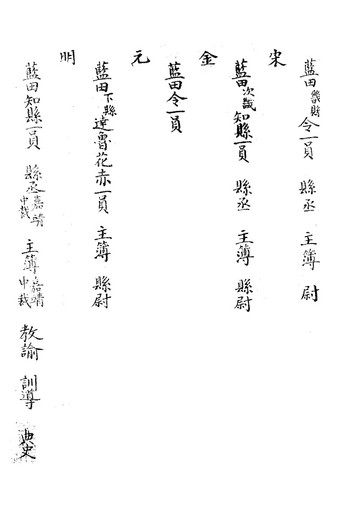 藍田畿縣令一員　縣丞　主簿　尉
宋
藍田次畿知縣一員　縣丞　主簿　縣尉
金
藍田令一員
元
藍田下縣達魯花赤一員　主簿　縣尉
明
藍田知縣一員　縣丞嘉靖中裁　主簿嘉靖中裁　教諭　訓導　典史